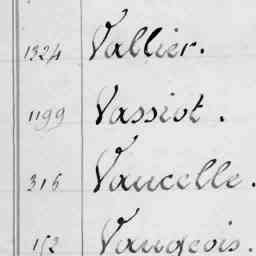 1324 Vallier.
1199 Vassiot.
315 Vaucelle.
152 Vaugeois.